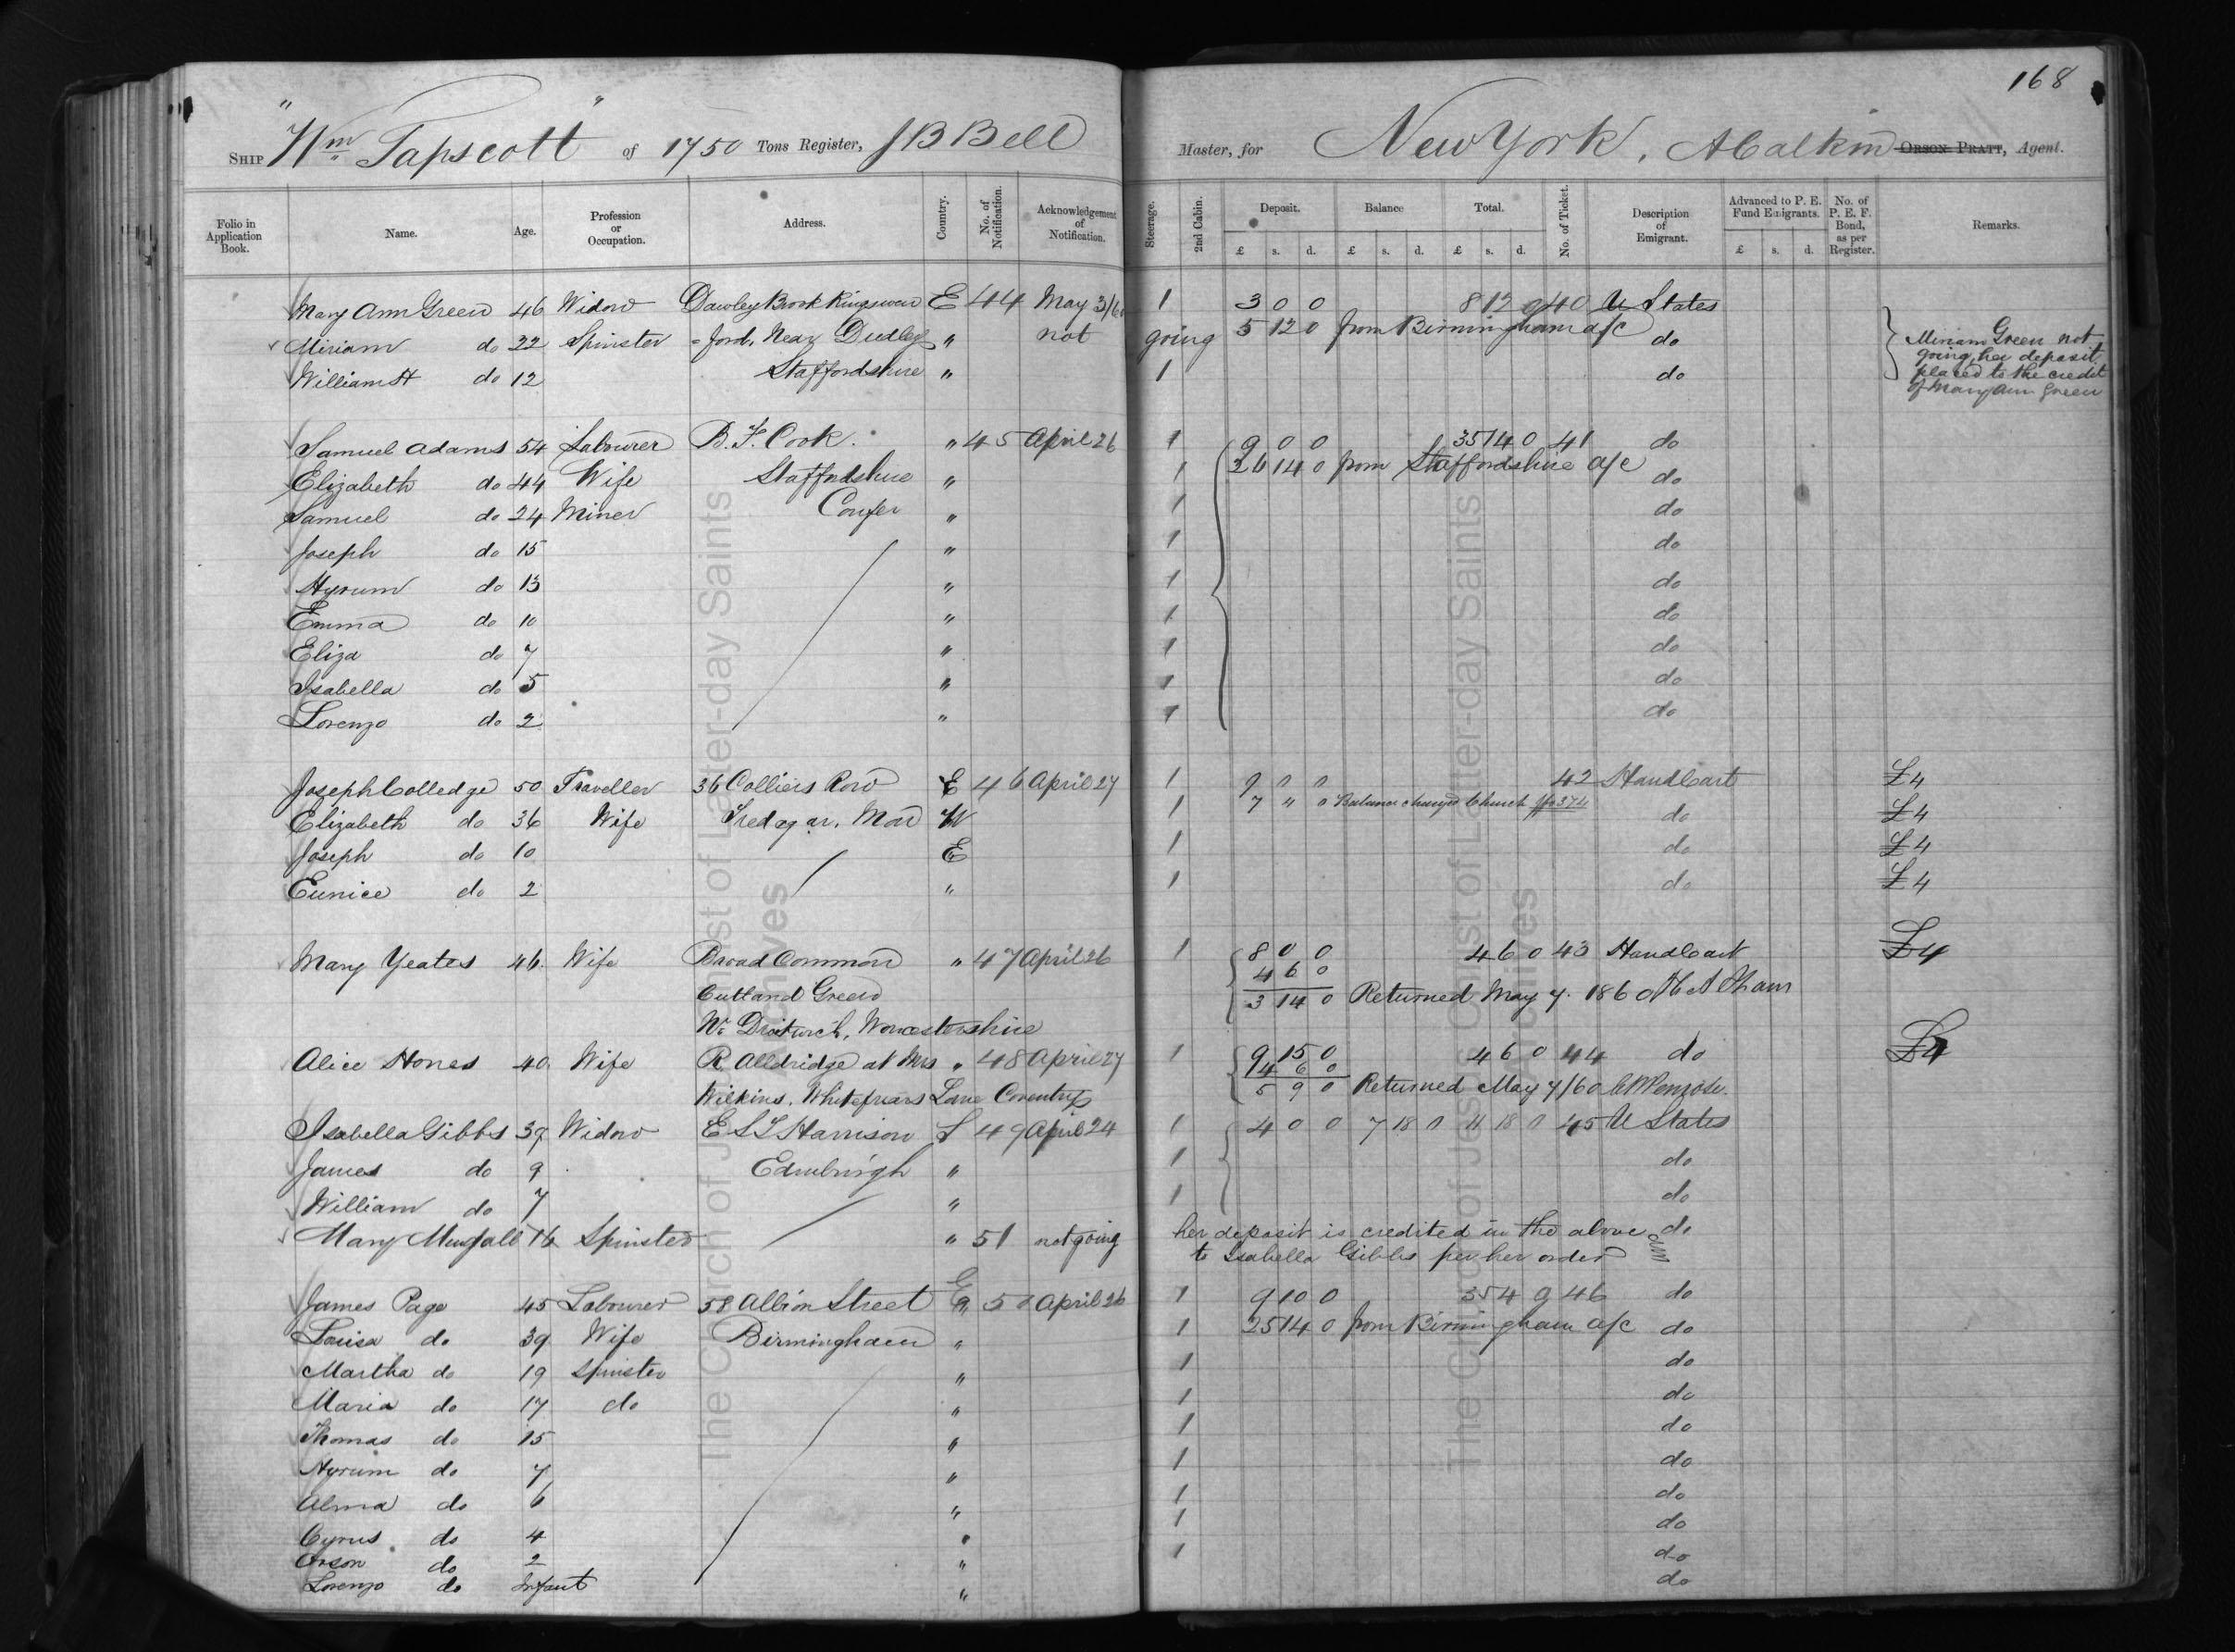 168
"Wm Tapscott"
SHIP of 1750 Tons Register, J B Bell Master, for New York. A Calkin ORSON PRATT, Agent.
Folio in Application Book. Name. Age. Profession or Occupation. Address. Country. No. of Notification. Acknowledgement of Notification. Steerage. 2nd Cabin. Deposit. Balance Total. No. of Ticket. Description of Emigrant. Advanced to P. E. Fund Emigrants. No. of P. E. F. Bond, as per Register. Remarks.
£ s. d. £ s. d. £ s. d. £ s. d.
Mary Ann Green 46 Widow Dawley Brook Kingswin E 44 May 3/60 1 3 0 0 8 12 0 40 U States
Miriam do 22 Spinster =ford, Near Dudley " not going 5 12 0 from Birmingham a/c do Miriam Green not
William H do 12 Staffordshire " 1 do going, her deposit
placed to the credit
of Mary Ann Green
Samuel Adams 54 Labourer B. F. Cook. " 45 April 26 1 9 0 0 35 14 0 41 do
Elizabeth do 44 Wife Staffordshire " 1 26 14 0 from Staffordshire a/c do
Samuel do 24 Miner Confer " 1 do
Joseph do 15 " 1 do
Hyrum do 13 " 1 do
Emma do 10 " 1 do
Eliza do 7 " 1 do
Isabella do 5 " 1 do
Lorenzo do 2 " 1 do
Joseph Colledge 50 Traveller 36 Colliers Row E 46 April 27 1 9 " " 42 HandCart £4
Elizabeth do 36 Wife Tredagar. Mon W 1 7 " 0 Balance charged Church do £4
Joseph do 10 E 1 do £4
Eunice do 2 " 1 do £4
Mary Yeates 46 Wife Broad Common " 47 April 26 1 8 0 0 4 6 0 43 HandCart £4
4 6 0
Cutland Green 3 14 0 Returned May 7. 1860
Nr Droitwich, Worcestershire
Alice Stones 40 Wife R. Alldridge at Mrs " 48 April 27 1 9 15 0 4 6 0 44 do £4
4 6 0
Wilkins. Whitefriars Lane Coventry 5 9 0 Returned May 7/60 C W Penrose.
Isabella Gibbs 39 Widow E L T Harrison S 49 April 24 1 4 0 0 7 18 0 11 18 0 45 U States
James do 9 Edinburgh " 1 do
William do 7 " 1 do
Mary 16 Spinster " 51 not going her deposit is credited in the above do
to Isabella Gibbs per her order
James Page 45 Labourer 58 Albion Street E 50 April 26 1 9 10 0 35 4 0 46 do
Louisa do 39 Wife Birmingham " 1 25 14 0 from Birmingham a/c do
Martha do 19 Spinster " 1 do
Maria do 17 do " 1 do
Thomas do 15 " 1 do
Hyrum do 7 " 1 do
Alma do 6 " 1 do
Cyrus do 4 " 1 do
Orson do 2 " 1 do
Lorenzo do Infant " do
The Church of Jesus Christ of Latter-day Saints
Archives
The Church of Jesus Christ of Latter-day Saints
Archives